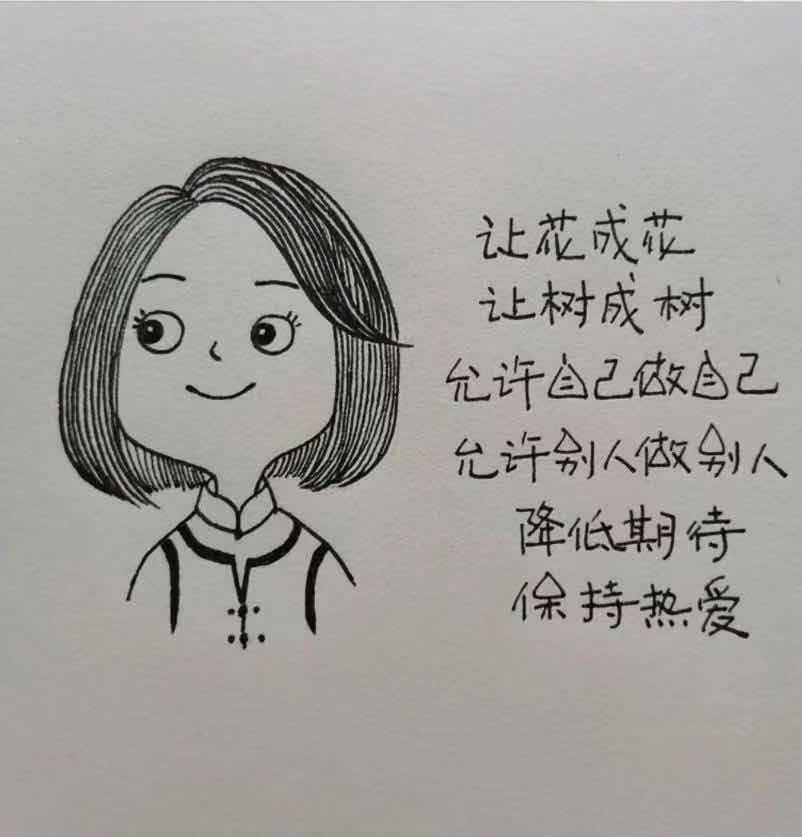 让花成花
让树成树
允许自己做自己
允许别人做别人
降低期待
保持热爱